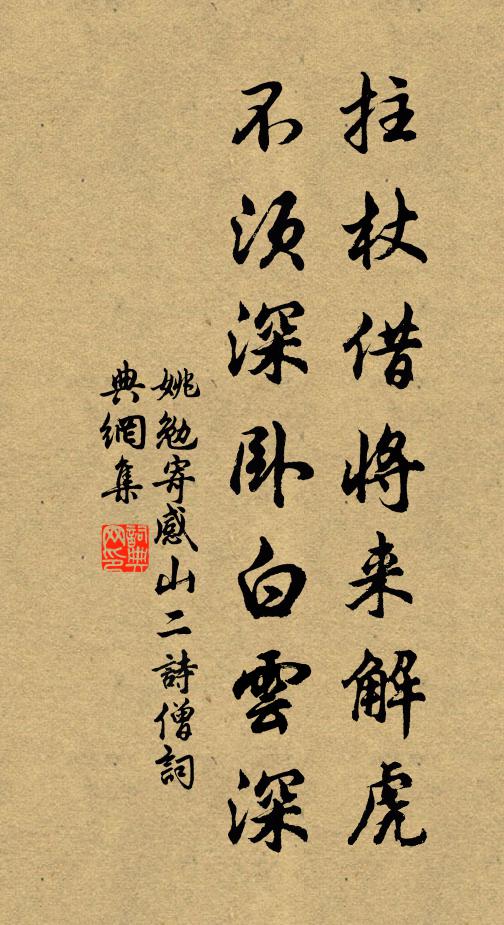 拄杖借將来解虎
不須深卧白雲深
姚勉寄感山二詩僧詞
典網集
詞典网印